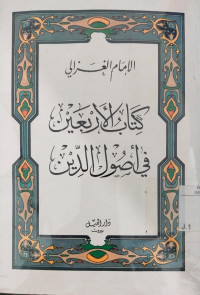 الإمام الغزالي
كتاب الأربعين
في أصول الدين
دار الجيل
بيروت